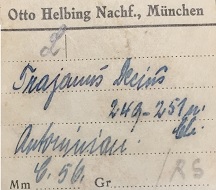 Otto Helbing Nachf., München
L
Trajanus Decius
249-251 n.
Chr.
Antoninian.
Mm C. 56. Gr RS